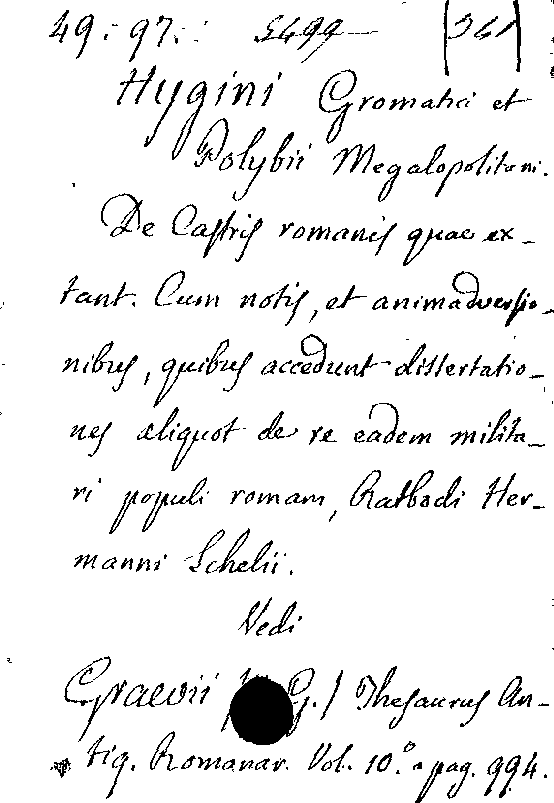 49. 97. (361)
Hygini Gromatici et
Polybii Megalopolitani.
De Castris romanis quae ex-
tant. Cum notis, et animadversio-
nibus, quibus accedunt dissertatio-
nes aliquot de re eadem milita-
ri populi romani, Ratbodi Her-
manni Schelii.
Vedi
Graevii G.) Thesaurus An-
tiq. Romanar. Vol. 10.° pag. 994.